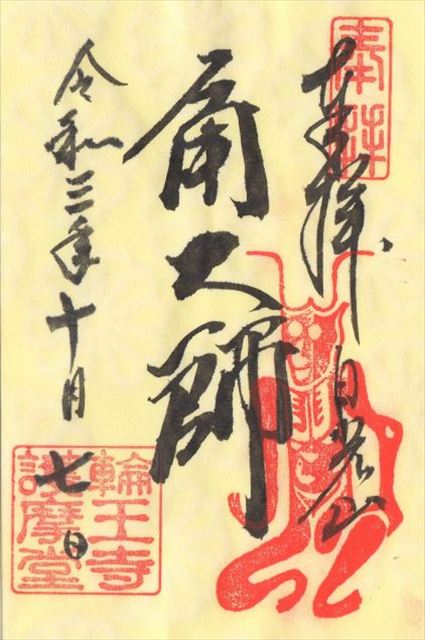 奉拝
奉拝
日光山
角大師
令和三年十月七日
輪王寺
護摩堂